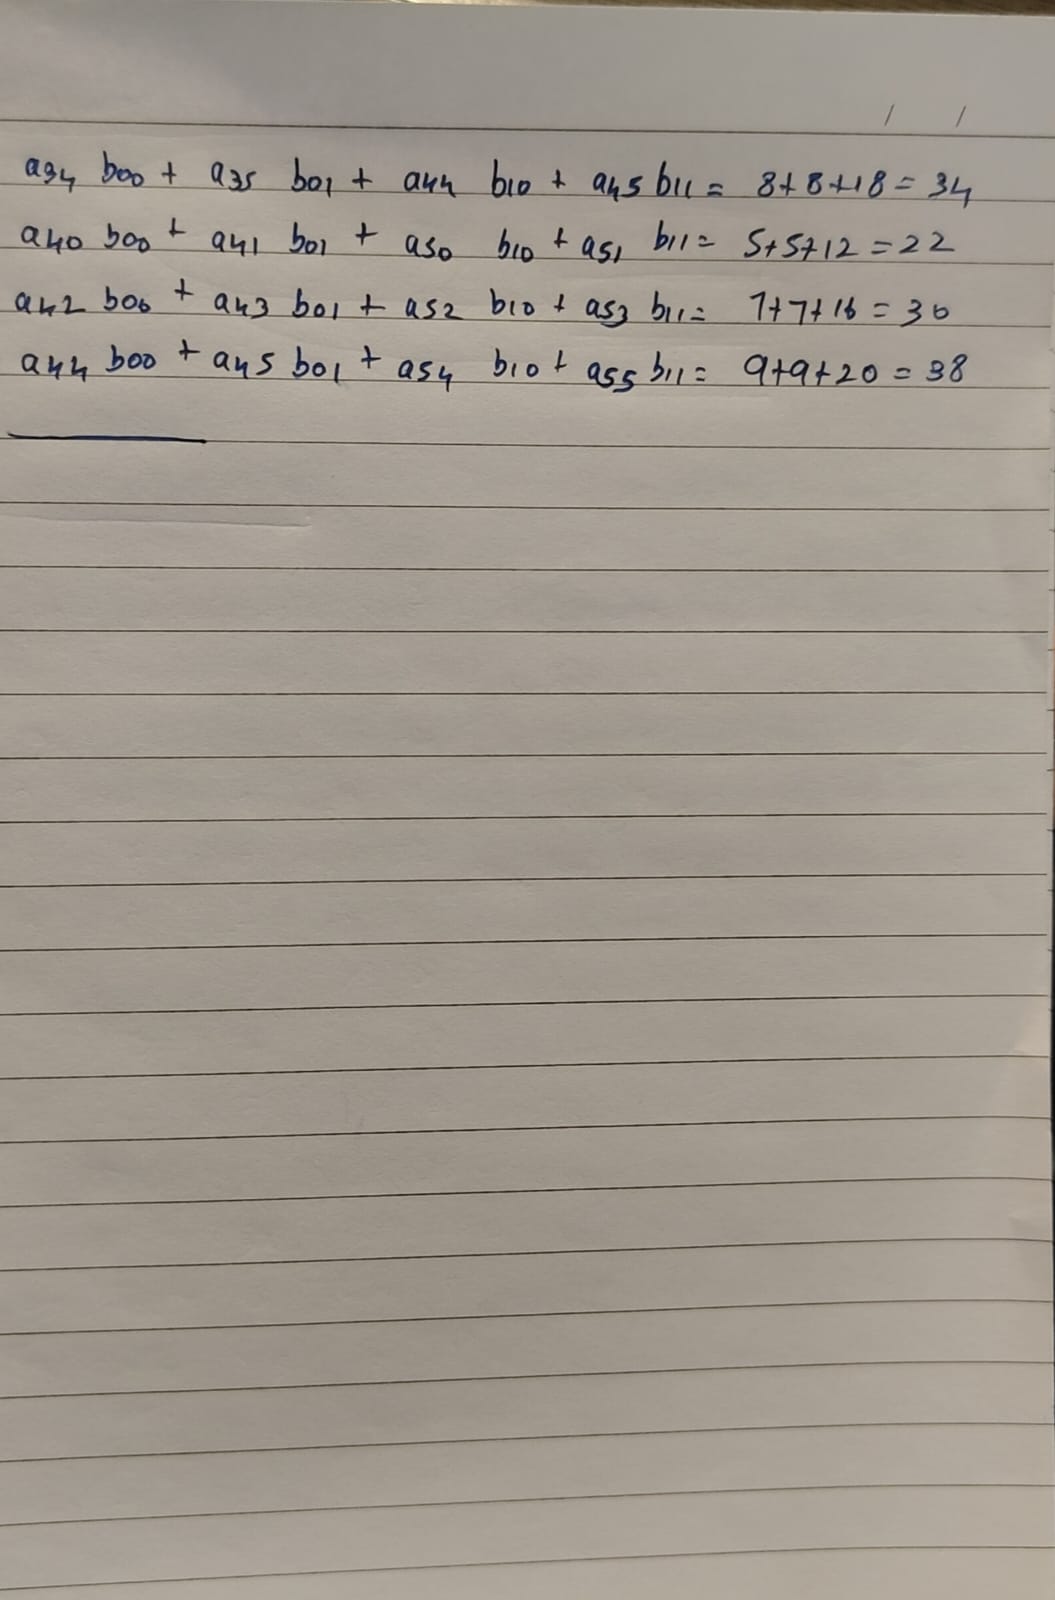 a34 b00 + a35 b01 + a44 b10 + a45 b11 = 8+8+18 = 34
a40 b00 + a41 b01 + a50 b10 + a51 b11 = 5+5+12 = 22
a42 b00 + a43 b01 + a52 b10 + a53 b11 = 7+7+16 = 30
a44 b00 + a45 b01 + a54 b10 + a55 b11 = 9+9+20 = 38